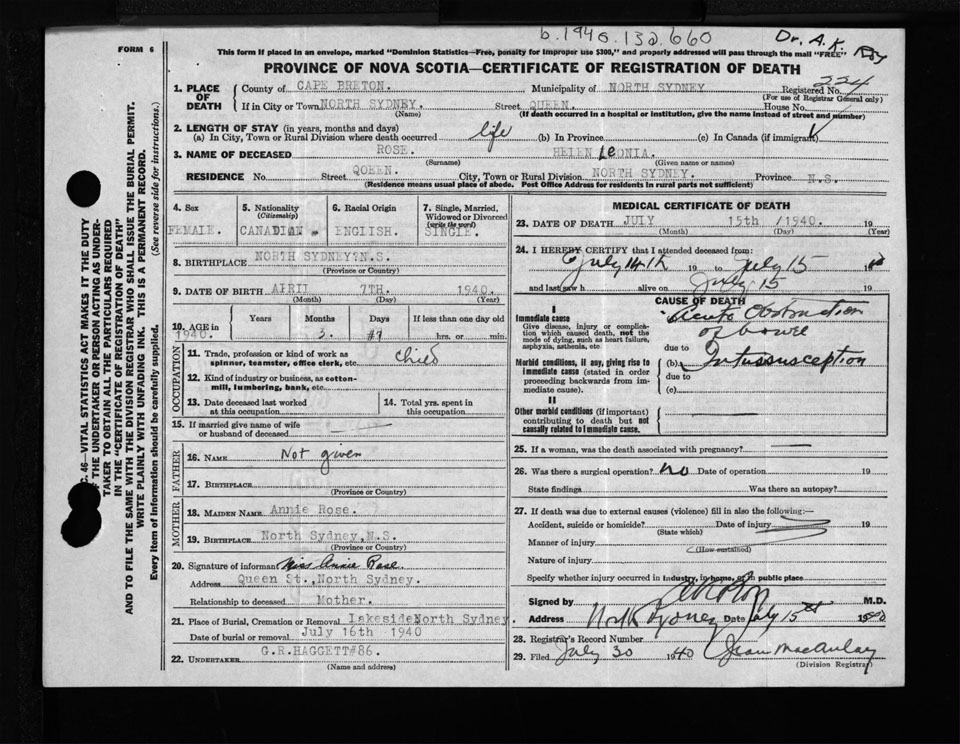 b.1940.132.660
Dr. A. K. Roy
FORM 6
This form if placed in an envelope, marked "Dominion Statistics—Free, penalty for improper use $300," and properly addressed will pass through the mail "FREE"
PROVINCE OF NOVA SCOTIA—CERTIFICATE OF REGISTRATION OF DEATH
SEC. 46—VITAL STATISTICS ACT MAKES IT THE DUTY
OF THE UNDERTAKER OR PERSON ACTING AS UNDER-
TAKER TO OBTAIN ALL THE PARTICULARS REQUIRED
IN THE "CERTIFICATE OF REGISTRATION OF DEATH"
AND TO FILE THE SAME WITH THE DIVISION REGISTRAR WHO SHALL ISSUE THE BURIAL PERMIT.
WRITE PLAINLY WITH UNFADING INK. THIS IS A PERMANENT RECORD.
Every item of Information should be carefully supplied. (See reverse side for instructions.)
1. PLACE OF DEATH County of CAPE BRETON. Municipality of NORTH SYDNEY Registered No. 224
(For use of Registrar General only)
If in City or Town NORTH SYDNEY. Street QUEEN. House No.
(Name) (If death occurred in a hospital or institution, give the name instead of street and number)
2. LENGTH OF STAY (in years, months and days)
(a) In City, Town or Rural Division where death occurred life (b) In Province (c) In Canada (if immigrant)
3. NAME OF DECEASED ROSE. HELEN LEONIA.
(Surname) (Given name or names)
RESIDENCE No. Street QUEEN. City, Town or Rural Division NORTH SYDNEY. Province N.S.
(Residence means usual place of abode. Post Office Address for residents in rural parts not sufficient)
4. Sex 5. Nationality (Citizenship) 6. Racial Origin 7. Single, Married, Widowed or Divorced (write the word)
FEMALE. CANADIAN. ENGLISH. SINGLE.
8. BIRTHPLACE NORTH SYDNEY.N.S.
(Province or Country)
9. DATE OF BIRTH APRIL 7TH. 1940.
(Month) (Day) (Year)
10. AGE in Years Months Days If less than one day old
1940. 3. 7 hrs. or min.
OCCUPATION
11. Trade, profession or kind of work as spinner, teamster, office clerk, etc. Child
12. Kind of industry or business, as cotton-mill, lumbering, bank, etc.
13. Date deceased last worked at this occupation 14. Total yrs. spent in this occupation
15. If married give name of wife or husband of deceased
FATHER
16. NAME Not given
17. BIRTHPLACE
(Province or Country)
MOTHER
18. MAIDEN NAME Annie Rose.
19. BIRTHPLACE North Sydney,N.S.
(Province or Country)
20. Signature of informant Miss Annie Rose.
Address Queen St.,North Sydney.
Relationship to deceased Mother.
21. Place of Burial, Cremation or Removal Lakeside North Sydney
Date of burial or removal July 16th 1940
22. UNDERTAKER G.R.HAGGETT#86.
(Name and address)
MEDICAL CERTIFICATE OF DEATH
23. DATE OF DEATH JULY 15th /1940. 19
(Month) (Day) (Year)
24. I HEREBY CERTIFY that I attended deceased from:
July 14th 19 to July 15 19
and last saw h alive on July 15
CAUSE OF DEATH
I
Immediate cause
Give disease, injury or complication which caused death, not the mode of dying, such as heart failure, asphyxia, asthenia, etc.
Acute Obstruction
of bowel
due to
Morbid conditions, if any, giving rise to immediate cause (stated in order proceeding backwards from immediate cause).
(b) Intussusception
due to
(c)
II
Other morbid conditions (if important) contributing to death but not causally related to immediate cause.
25. If a woman, was the death associated with pregnancy?
26. Was there a surgical operation? no Date of operation 19
State findings Was there an autopsy?
27. If death was due to external causes (violence) fill in also the following:—
Accident, suicide or homicide? Date of injury 19
(State which)
Manner of injury
(How sustained)
Nature of injury
Specify whether injury occurred in Industry, in home, or in public place
Signed by M.D.
Address North Sydney Date July 15th 1940
28. Registrar's Record Number
29. Filed July 30 1940 Jean MacAulay
(Division Registrar)